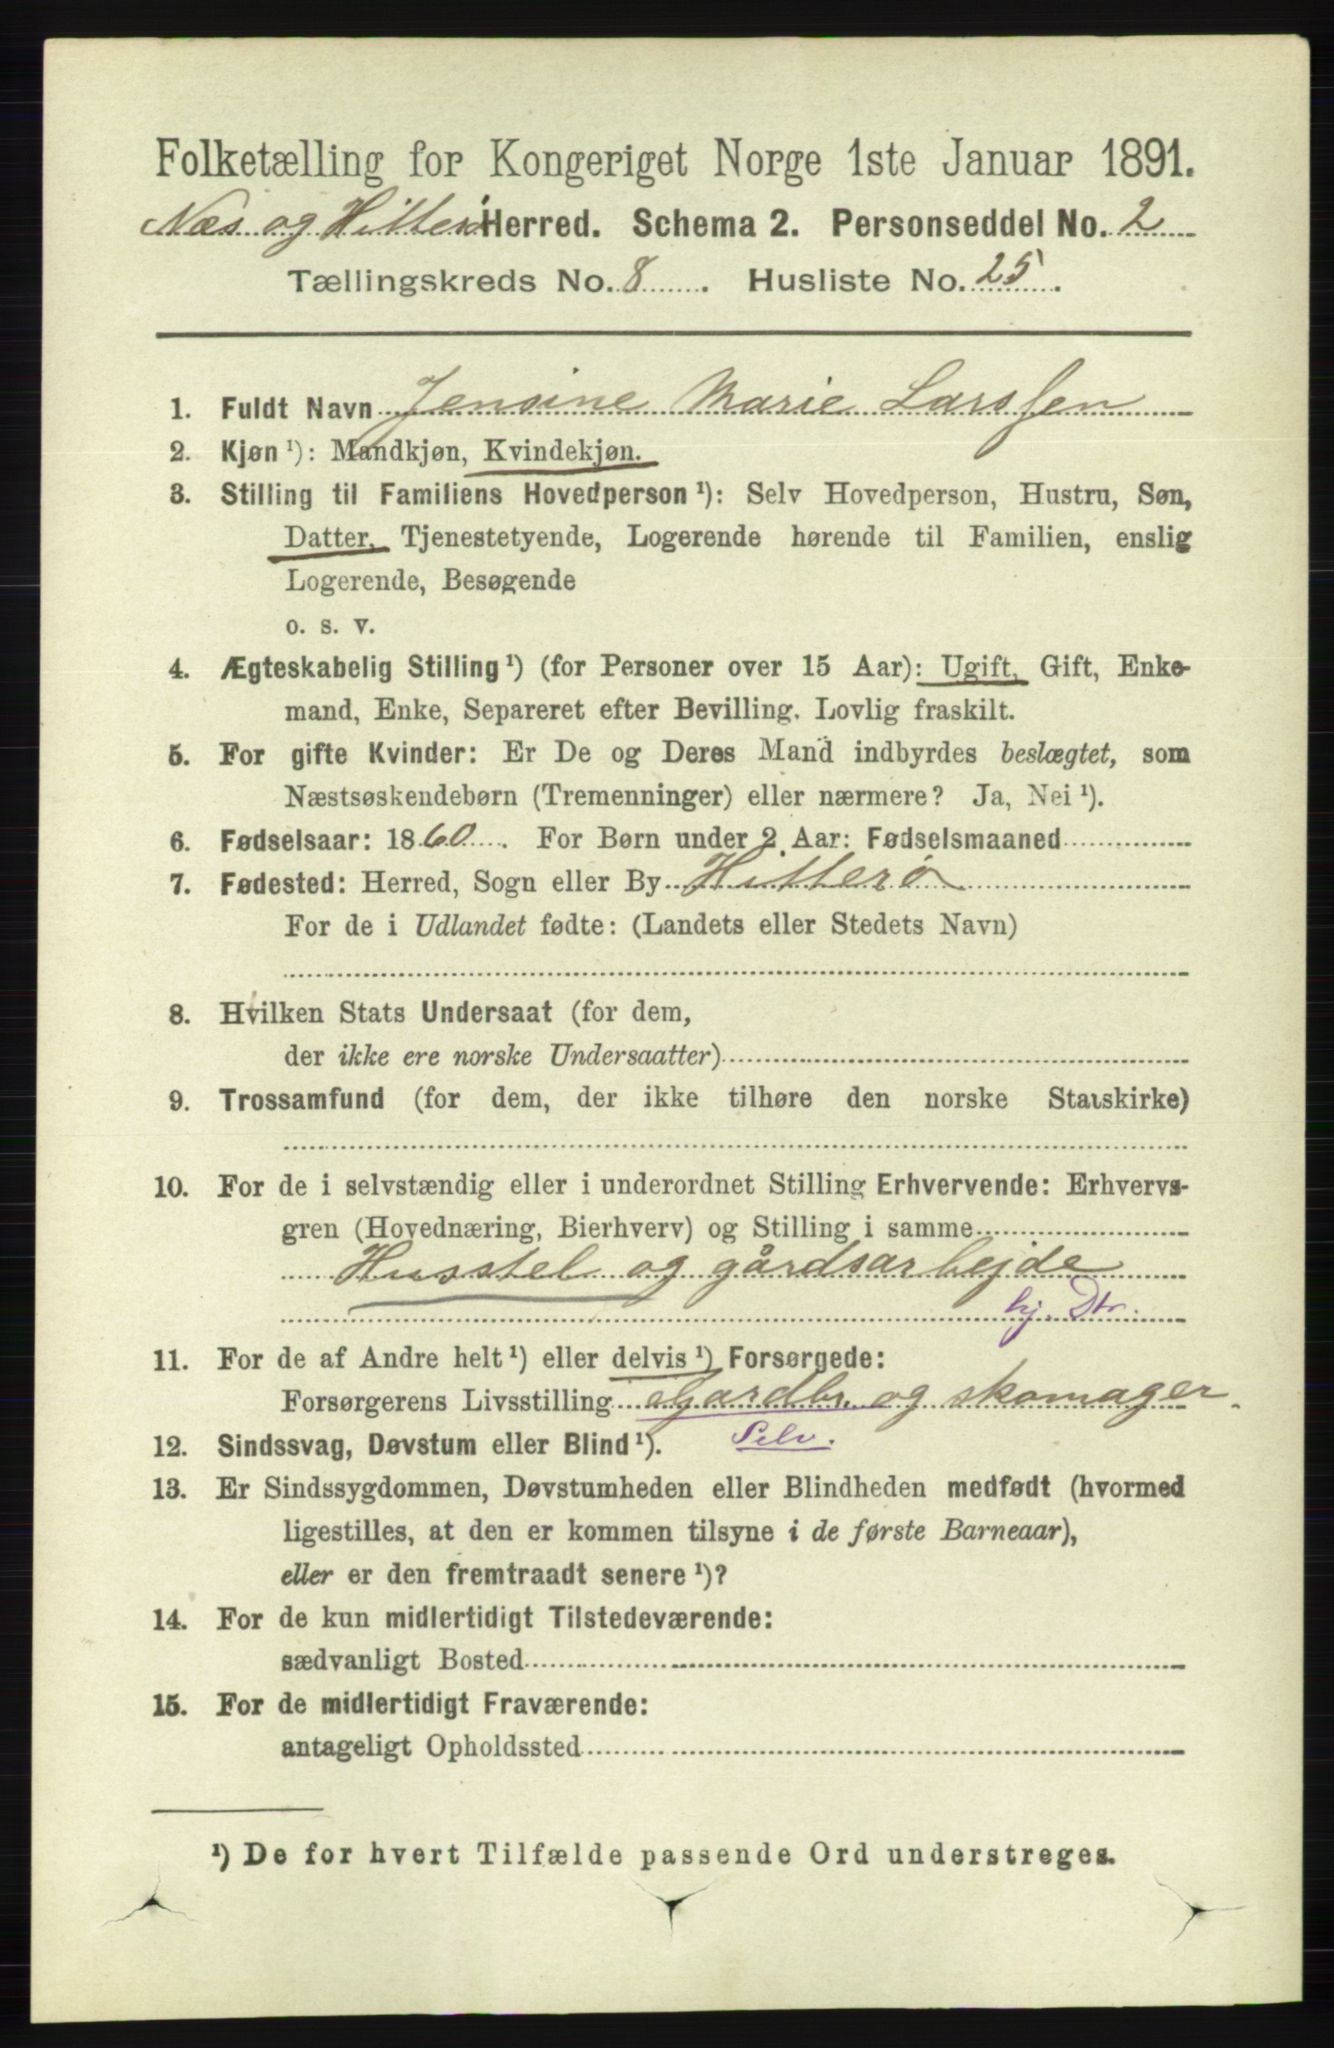 Folketælling for Kongeriget Norge 1ste Januar 1891.
Næs og Hitterø Herred. Schema 2. Personseddel No. 2
Tællingskreds No. 8. Husliste No. 25.
1. Fuldt Navn Jensine Marie Larssen
2. Kjøn ¹): Mandkjøn, Kvindekjøn.
3. Stilling til Familiens Hovedperson ¹): Selv Hovedperson, Hustru, Søn,
Datter, Tjenestetyende, Logerende hørende til Familien, enslig
Logerende, Besøgende
o. s. v.
4. Ægteskabelig Stilling ¹) (for Personer over 15 Aar): Ugift, Gift, Enke-
mand, Enke, Separeret efter Bevilling. Lovlig fraskilt.
5. For gifte Kvinder: Er De og Deres Mand indbyrdes beslægtet, som
Næstsøskendebørn (Tremenninger) eller nærmere? Ja, Nei ¹).
6. Fødselsaar: 1860. For Børn under 2 Aar: Fødselsmaaned
7. Fødested: Herred, Sogn eller By Hitterø
For de i Udlandet fødte: (Landets eller Stedets Navn)
8. Hvilken Stats Undersaat (for dem,
der ikke ere norske Undersaatter)
9. Trossamfund (for dem, der ikke tilhøre den norske Statskirke)
10. For de i selvstændig eller i underordnet Stilling Erhvervende: Erhvervs-
gren (Hovednæring, Bierhverv) og Stilling i samme
Husstel og gårdsarbejde
hj. Dtr.
11. For de af Andre helt ¹) eller delvis ¹) Forsørgede:
Forsørgerens Livsstilling Gardbr. og skomager.
Selv.
12. Sindssvag, Døvstum eller Blind ¹).
13. Er Sindssygdommen, Døvstumheden eller Blindheden medfødt (hvormed
ligestilles, at den er kommen tilsyne i de første Barneaar),
eller er den fremtraadt senere ¹)?
14. For de kun midlertidigt Tilstedeværende:
sædvanligt Bosted
15. For de midlertidigt Fraværende:
antageligt Opholdssted
¹) De for hvert Tilfælde passende Ord understreges.